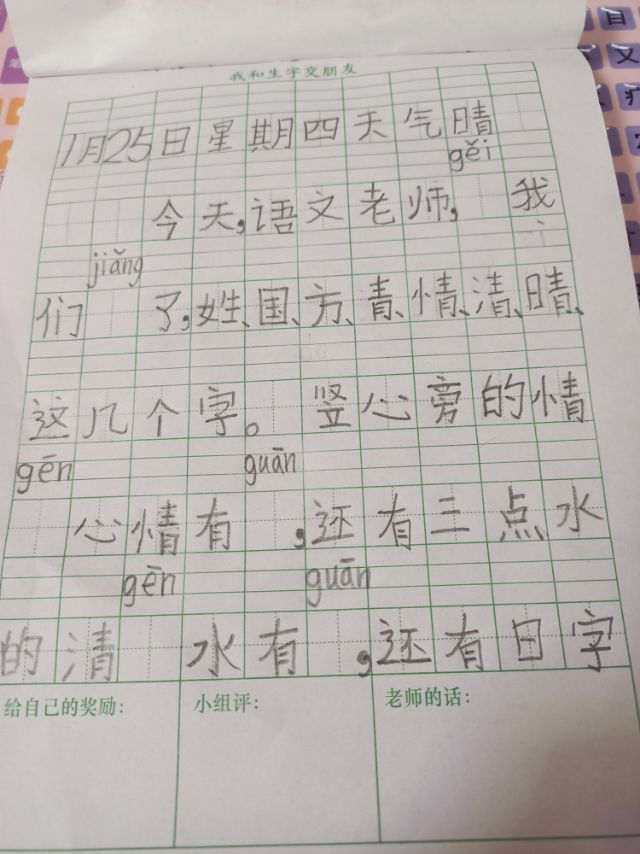 我和生字交朋友
1月25日星期四天气晴
gěi
今天,语文老师, 我
jiǎng
们 了,姓、国、方、青、情、清、晴、
这几个字。 竖心旁的情
gēn guān
心情有 ,还有三点水
gēn guān
的清 水有 ,还有日字
给自己的奖励:
小组评:
老师的话:
自
又